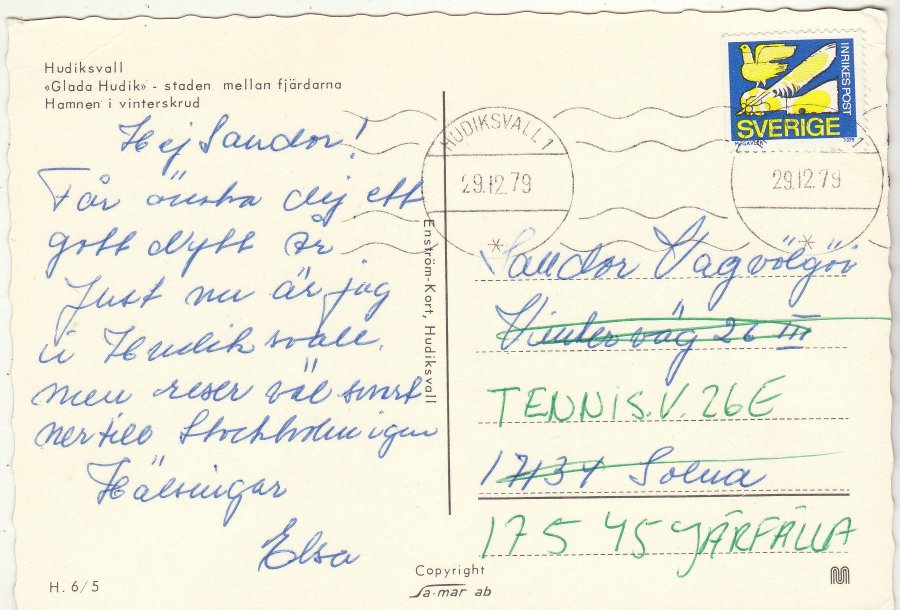 Hudiksvall
«Glada Hudik» - staden mellan fjärdarna
Hamnen i vinterskrud
Hej Sandor!
Får önska dej ett
gott Nytt år
Just nu är jag
i Hudiksvall,
men reser väl snart
ner till Stockholm igen
Hälsningar
Elsa
H. 6/5
Enström-Kort, Hudiksvall
Copyright
Sa-mar ab
INRIKES POST
SVERIGE
1979
HUDIKSVALL 1
29.12.79
1
29.12.79
Sandor Vagvölgyi
Vinterväg 26 III
TENNIS.V. 26E
17134 Solna
175 45 JÄRFÄLLA